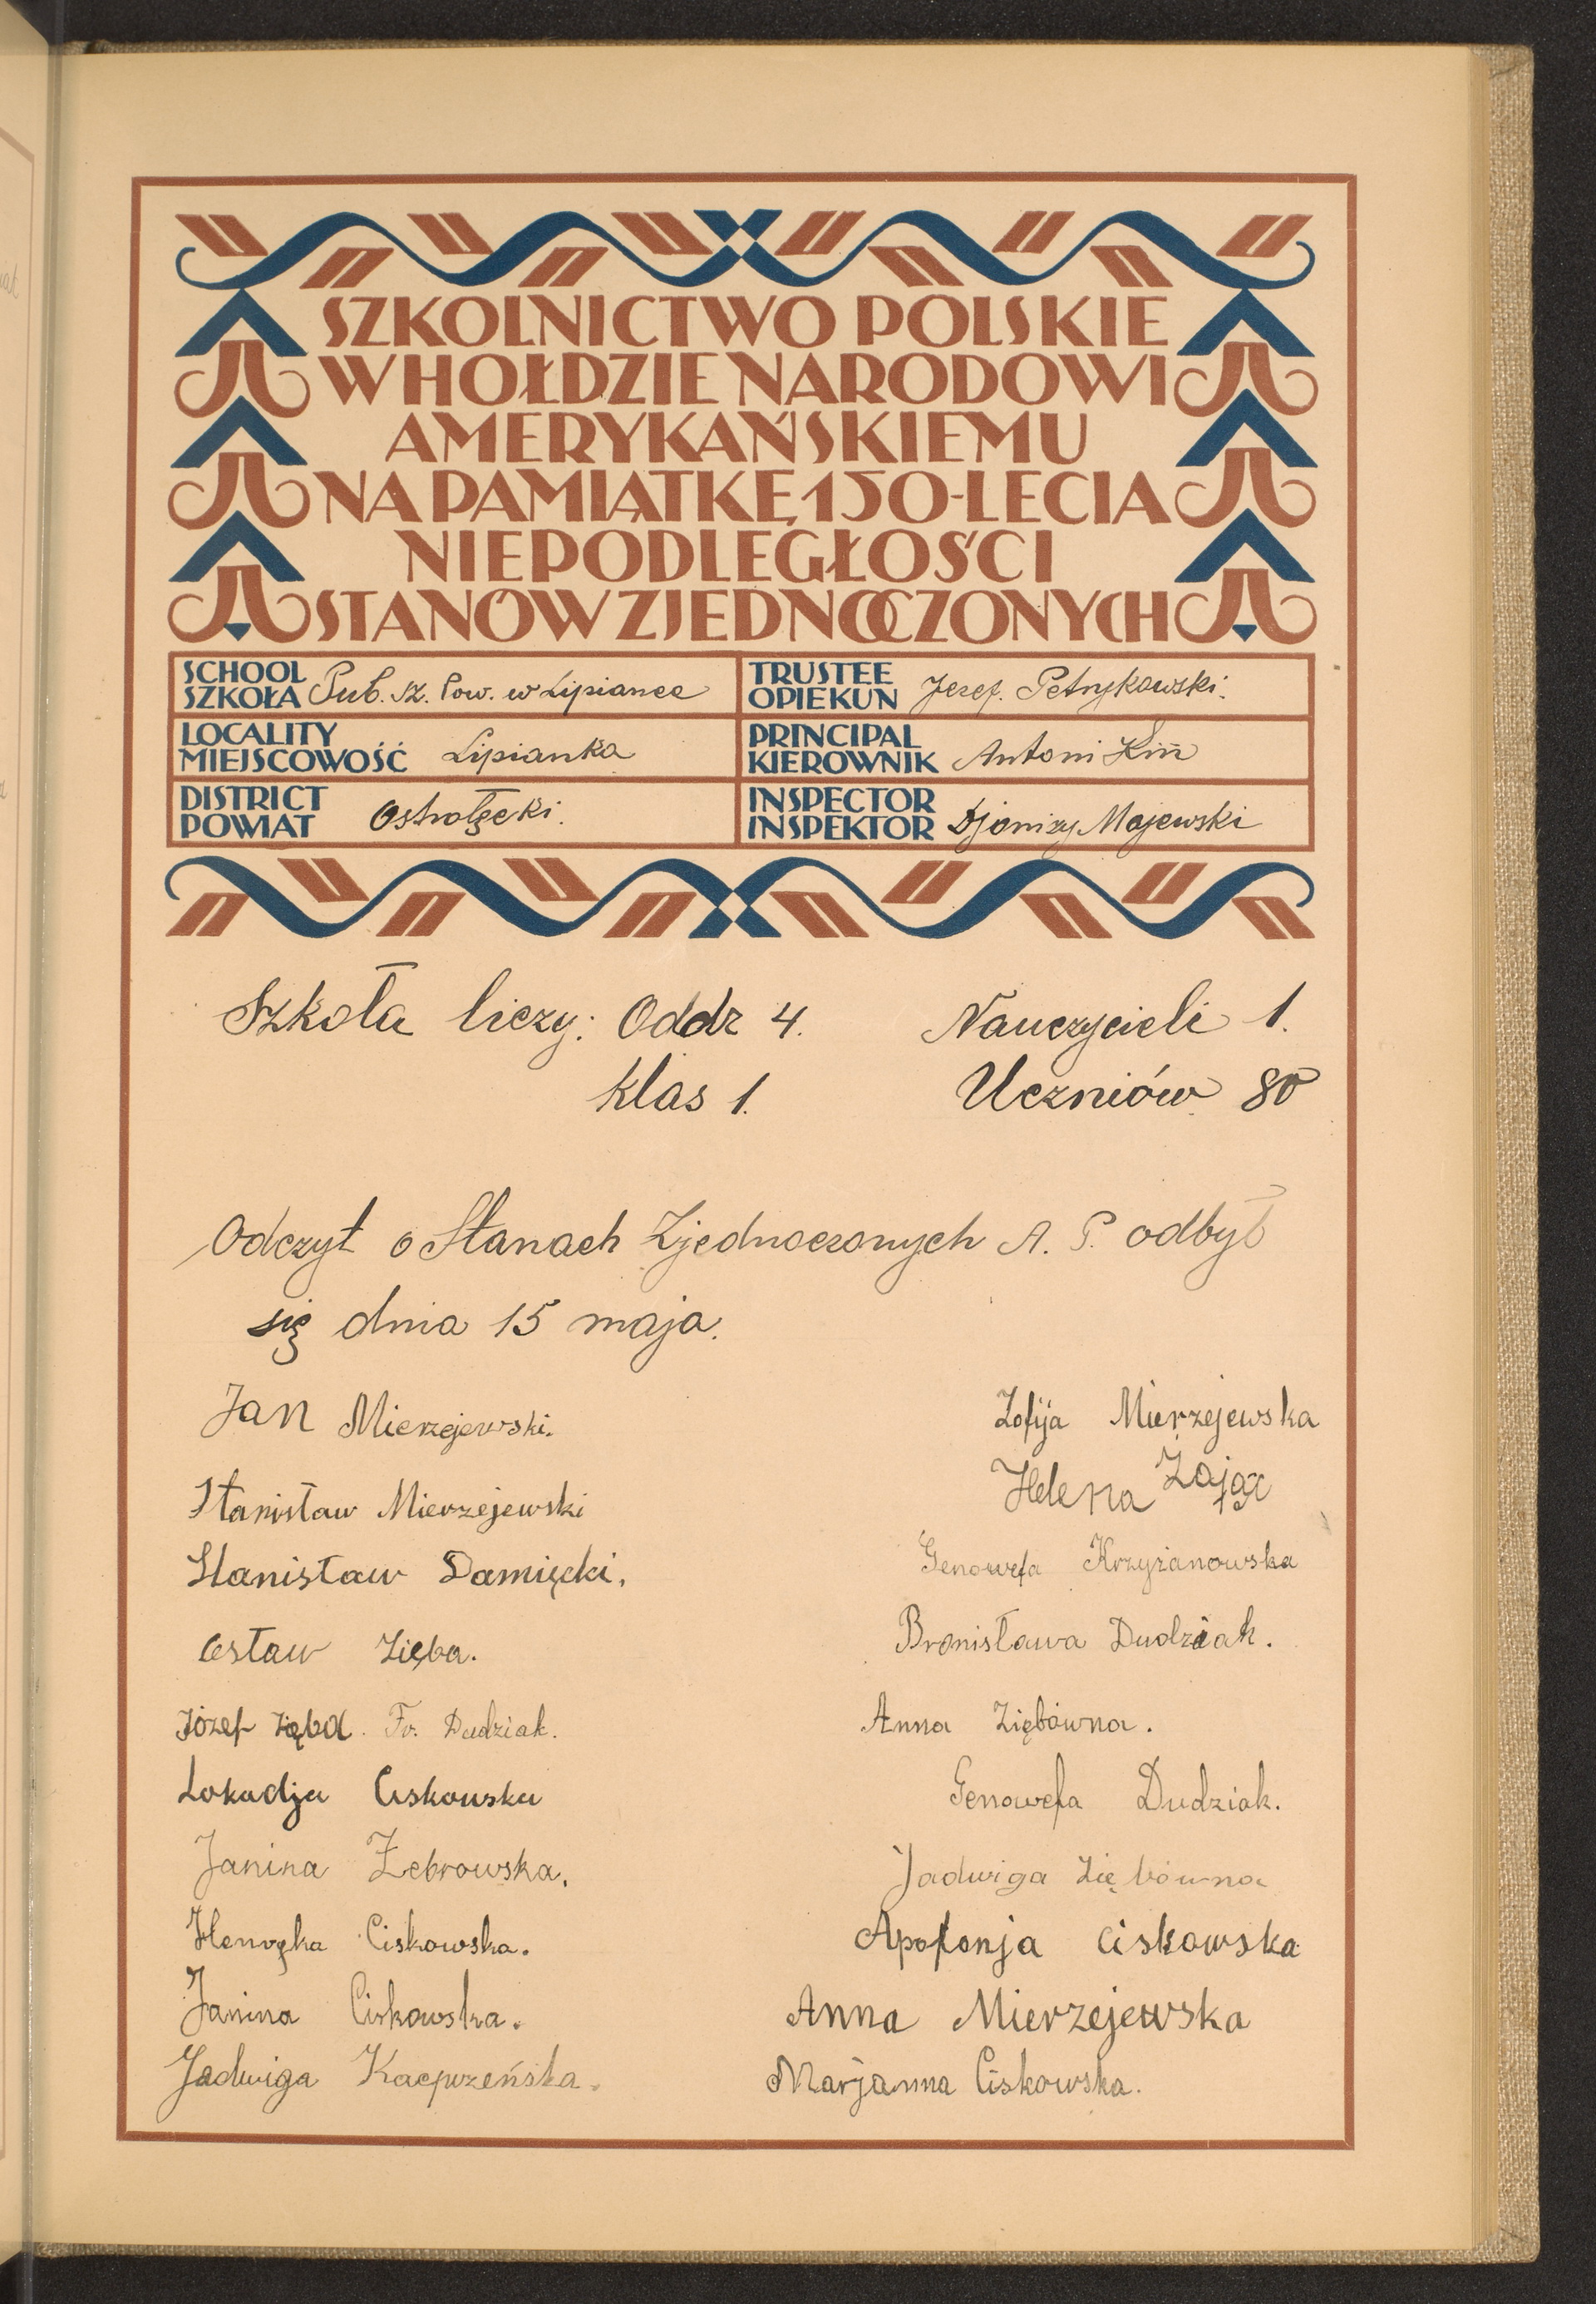 SZKOLNICTWO POLSKIE
W HOŁDZIE NARODOWI
AMERYKAŃSKIEMU
NA PAMIĄTKĘ 150-LECIA
NIEPODLEGŁOŚCI
STANÓW ZJEDNOCZONYCH
SCHOOL
SZKOŁA Pub. sz. Pow. w Lipiance
TRUSTEE
OPIEKUN Jozef. Petrykowski.
LOCALITY
MIEJSCOWOŚĆ Lipianka
PRINCIPAL
KIEROWNIK Antoni
DISTRICT
POWIAT Ostrołęcki.
INSPECTOR
INSPEKTOR Djonizy Majewski
Szkoła liczy: Oddz 4. Nauczycieli 1.
klas 1. Uczniów 80
Odczyt o Stanach Zjednoczonych A. P. odbył
się dnia 15 maja.
Jan Mierzejewski. Zofija Mierzejewska
Stanisław Mierzejewski Helena Zając
Stanisław Damięcki. Genowefa Krzyżanowska
Cesław Zięba. Bronisława Dudziak.
Józef Zięba. Fr. Dudziak. Anna Ziębówna.
Lokadja Ciskowska Genowefa Dudziak.
Janina Żebrowska. Jadwiga Ziębówna
Henryka Ciskowska. Apolonja Ciskowska
Janina Ciskowska. Anna Mierzejewska
Jadwiga Kacpzeńska. Marjanna Ciskowska.